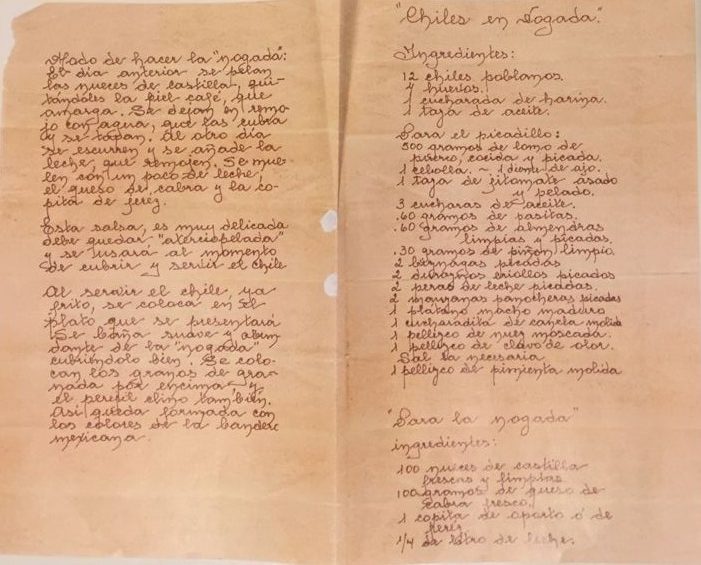 Modo de hacer la "nogada":
El día anterior se pelan
las nueces de castilla, qui-
tándoles la piel café, que
amarga. Se dejan en remo-
jo con agua, que las cubra
y se tapan. Al otro día
se escurren y se añade la
leche, que remojen. Se mue-
len con un poco de leche,
el queso de cabra y la co-
pita de jerez.
Esta salsa, es muy delicada
debe quedar "aterciopelada"
y se usará al momento
de cubrir y servir el chile
Al servir el chile, ya
frito, se coloca en el
plato que se presentará
Se baña suave y abun
dante de la "nogada"
cubriéndolo bien. Se colo-
can los granos de gra-
nada por encima y
el perejil chino también.
Así queda formada con
los colores de la bandera
mexicana.
"Chiles en Nogada".
Ingredientes:
12 chiles poblanos.
4 huevos.
1 cucharada de harina.
1 taza de aceite.
Para el picadillo:
500 gramos de lomo de
puerco, cocida y picada.
1 cebolla. ~ 1 diente de ajo.
1 taza de jitomate asado
y pelado.
3 cucharas de aceite.
.60 gramos de pasitas.
.60 gramos de almendras
limpias y picadas.
.30 gramos de piñón limpio.
2 picadas
2 duraznos criollos picados
2 peras de leche picadas.
2 manzanas panocheras picadas
1 platano macho maduro
1 cucharadita de canela molida
1 pellizco de nuez moscada.
1 pellizco de clavo de olor.
Sal la necesaria
1 pellizco de pimienta molida
"Para la nogada"
ingredientes:
100 nueces de castilla
frescas y limpias
100 gramos de queso de
cabra fresco.
1 copita de oporto ó de
jerez
1/4 de litro de leche.